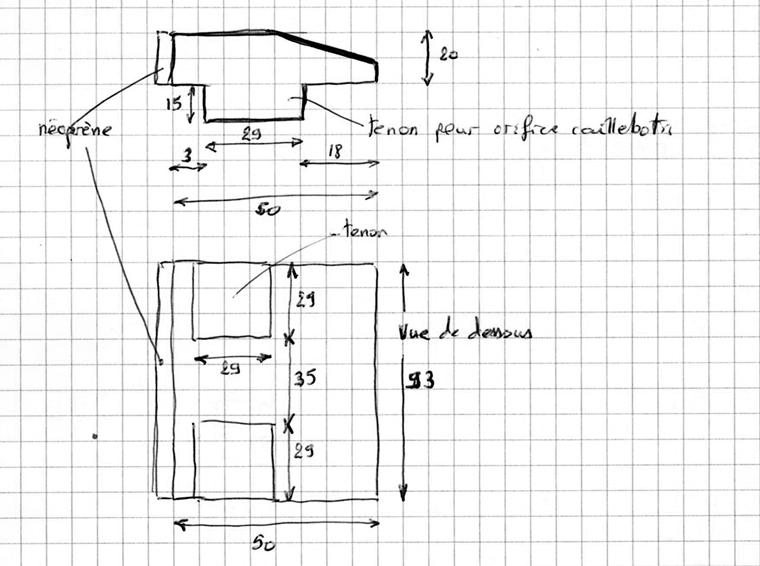 20
15
néoprène
tenon pour orifice caillebotis
29
3
18
50
tenon
29
vue de dessous
29
35
93
29
50